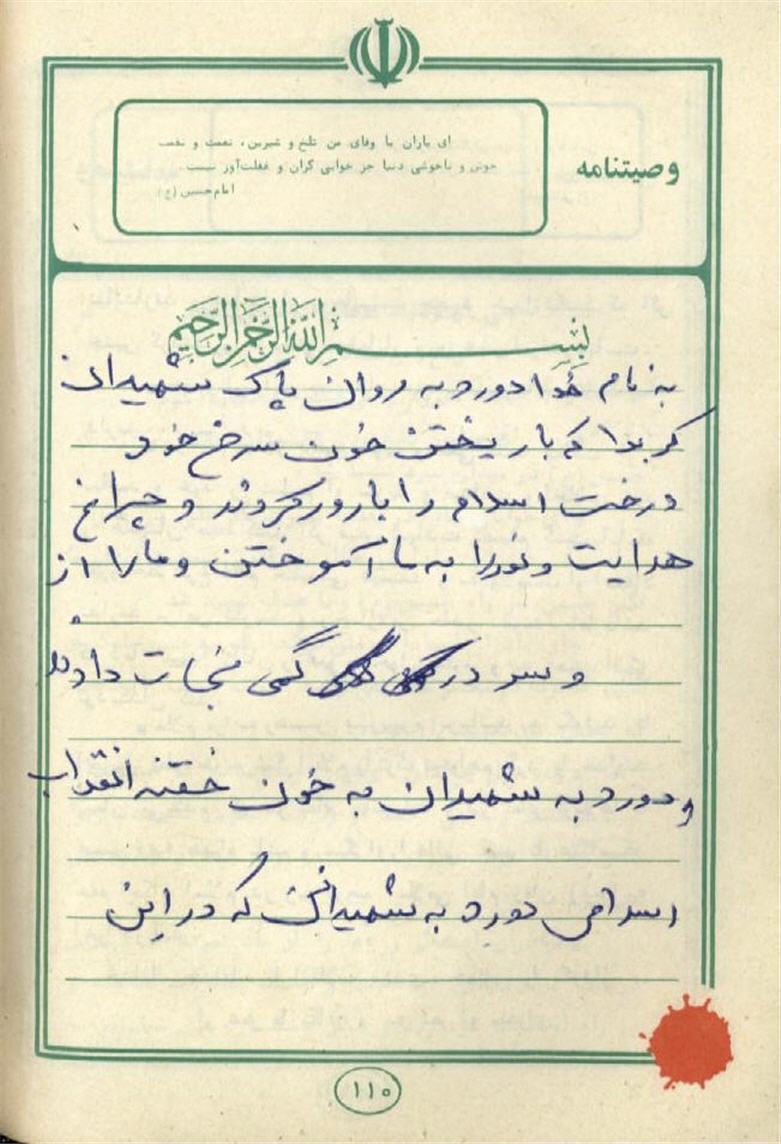 وصیتنامه
ای یاران با وفای من تلخ و شیرین، نعمت و نقمت
خوش و ناخوشی دنیا جز خوابی گران و غفلت‌آور نیست
امام حسین (ع)
بسم الله الرحمن الرحیم
به نام خدا درود به روان پاک شهیدان
کربلا که با ریختن خون سرخ خود
درخت اسلام را بارور کردند و چراغ
هدایت و نور را به ما آموختن و ما را از
و سر در گمی نجات دادند
و درود به شهیدان به خون خفته انقلاب
اسلامی درود به شهیدانی که در این
۱۱۰